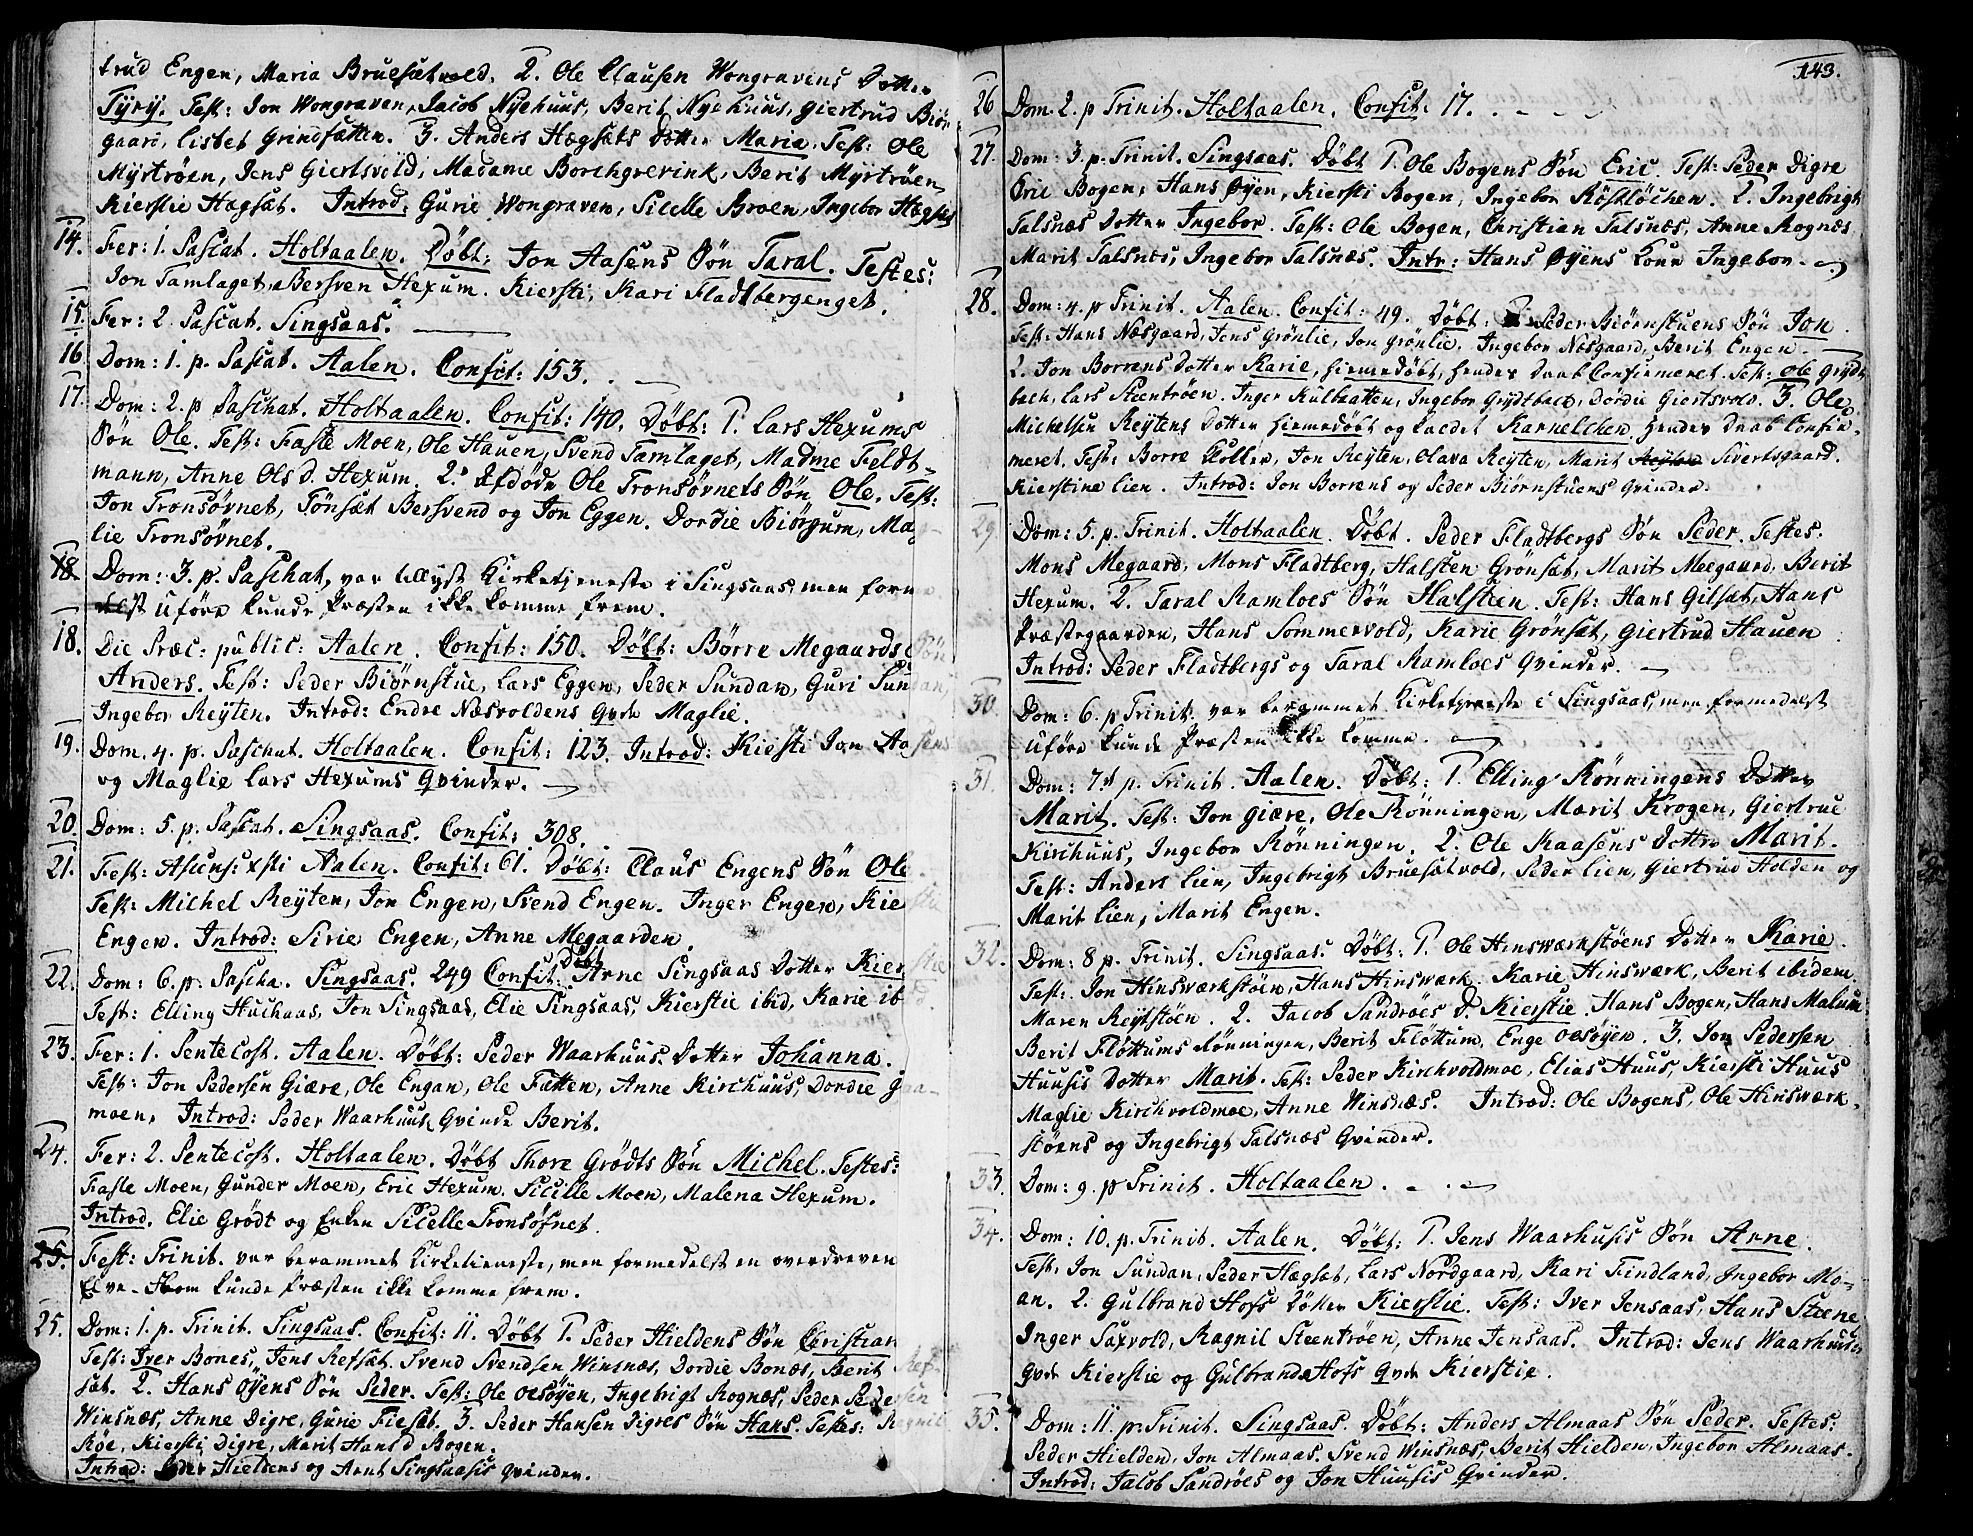 trud Engen, Maria Bruesætvold. 2. Ole Clausen Wongravens Dotter
Tyry. Test: Jon Wongraven, Jacob Nyehuus, Berit Nyehuus, Giertrud Biør
gaard, Lisbet Grindsætten. 3. Anders Hægsæts Dotter Maria. Test: Ole
Myrtrøen, Jens Giertsvold, Madame Borchgrevink, Berit Myrtrøen,
Kierstie Hægsæt. Introd: Gurie Wongraven, Sicelle Broen, Ingebor Hægsæt
14. Fer: 1. Pascat. Holtaalen. Døbt: Jon Aasens Søn Taral. Testes:
Jon Tamlaget, Bersven Hexum. Kiersti, Kari Fladtbergenget.
15. Fer: 2. Pascat. Singsaas.
16. Dom: 1. p. Pascat. Aalen. Confit: 153.
17. Dom: 2. p Paschat. Holtaalen. Confit: 140. Døbt: 1. Lars Hexums
Søn Ole. Test: Faste Moen, Ole Hauen, Svend Tamlaget, Madme Feldt-
mann, Anne Ols D. Hexum. 2. Afdøde Ole Tronsøvnets Søn Ole. Test:
Jon Tronsøvnet, Tønsæt Bersvend og Jon Eggen. Dordie Biørgum, Mag-
lie Tronsøvnet.
18. Dom: 3. p. Paschat, var tillyst Kirketjeneste i Singsaas, men forme
delst uføre kunde Præsten ikke komme frem.
18. Die Præc: public: Aalen. Confit: 150. Døbt: Børre Megaards Søn
Anders. Test: Peder Biørnstue, Lars Eggen, Peder Sundan, Guri Sundan,
Ingebor Reyten. Introd: Endre Næsvoldens Qvde Maglie.
19. Dom. 4. p. Paschat. Holtaalen. Confit: 123. Introd: Kiersti Jon Aasens
og Maglie Lars Hexums Qvinder.
20. Dom: 5. p. Pascat. Singsaas. Confit: 308.
21. Fest: Ascens: xsti Aalen. Confit: 61. Døbt: Claus Engens Søn Ole.
Test: Michel Reyten, Jon Engen, Svend Engen. Inger Engen, Kiersti
Engen. Introd: Sirie Engen, Anne Megaarden.
22. Dom: 6. p. Pascha. Singsaas. 249 Confit: Døbt Arne Singsaas Dotter Kierstie
Test: Elling Huehaas, Jon Singsaas, Elie Singsaas, Kierstie ibid, Karie ibid.
23. Fer: 1. Pentecost. Aalen. Døbt: Peder Waarhuus Dotter Johanna.
Test: Jon Pedersen Giære, Ole Engan, Ole Fatten, Anne Kirchuus, Dordie
moen, Introd: Peder Waarhuus Qvinde Berit.
24. Fer: 2. Pentecost. Holtaalen. Døbt Thore Grødts Søn Michel. Testes:
Faste Moen, Gunder Moen, Eric Hexum. Sicille Moen, Malena Hexum.
Introd. Elie Grødt og Enken Sicelle Tronsøfnet.
25. Fest: Trinit. var berammet Kirketieneste, men formedelst en overdreven
Elve-Flom kunde Præsten ikke komme frem.
25. Dom: 1. p. Trinit. Singsaas. Confit: 11. Døbt 1. Peder Hieldens Søn Christian
Test: Iver Bones, Jens Refsæt. Svend Svendsen Winsnæs, Dordie Bonæs, Berit Ref-
sæt. 2. Hans Øyens Søn Peder. Test: Ole Oesøyen, Ingebrigt Rognæs, Peder Pedersen
Winsnæs, Anne Digre, Gurie Fiesæt. 3. Peder Hansen Digres Søn Hans. Testes: Ragnil
Røe, Kiersti Digre, Marit Hans D Bogen.
Introd: Peder Hieldens og Arnt Singsaasis Qvinder.
143.
26 Dom. 2. p Trinit. Holtaalen. Confit: 17.
27. Dom: 3. p. Trinit. Singsaas. Døbt 1. Ole Bogens Søn Eric. Test: Peder Digre
Eric Bogen, Hans Øyen, Kiersti Bogen, Ingebor Røskløchen. 2. Ingebrigt
Talsnæs Dotter Ingebor. Test: Ole Bogen, Christian Talsnæs, Anne Rognæs
Marit Talsnæs, Ingebor Talsnæs. Intr: Hans Øyens Kone Ingebor.
28. Dom: 4. p Trinit. Aalen. Confit: 49. Døbt: Peder Biørnstuens Søn Jon.
Test: Hans Næsgaard, Jens Grønlie, Jon Grønlie. Ingebor Næsgaard, Berit Engen.
2. Jon Borrens Dotter Karie, hiemedøbt, hendes Daab Confirmeret. Test: Ole Grydt
bech, Lars Steentrøen. Inger Kulbratten, Ingebor Grydtbech, Dordie Giertsvold. 3. Ole
Michelsen Reytens Dotter hiemedøbt og kaldet Karnelchen hendes Daab Confir-
meret. Test: Borre Koller, Jon Reyten, Olava Reyten, Marit Sivertsgaard.
Kierstine Lien. Introd: Jon Borrens og Peder Biørnstuens Qvinder.
29 Dom: 5. p. Trinit. Holtaalen. Døbt. Peder Fladtbergs Søn Peder. Testes:
Mons Megaard, Mons Fladtberg, Halsten Grønsæt, Marit Meegaard, Berit
Hexum. 2. Taral Ramloes Søn Halsteen. Test: Hans Gilsæt, Hans
Præstegaarden, Hans Sommervold, Karie Grønsæt, Giertrud Hauen
Introd: Peder Fladtbergs og Taral Ramloes Qvinder.
30. Dom: 6. p Trinit. var berammet Kirketjeneste i Singsaas, men formedelst
uføre kunde Præsten ikke komme.
31. Dom: 7de p. Trinit. Aalen. Døbt: 1. Elling Rønningens Dotter
Marit. Test: Jon Giære, Ole Rønningen, Marit Krogen, Giertrue
Kirchuus, Ingebor Rønningen. 2. Ole Kaasens Dotter Marit.
Test: Anders Lien, Ingebrigt Bruesætvold, Peder Lien, Giertrud Holden og
Marit Lien, Marit Engen.
32. Dom: 8 p. Trinit. Singsaas. Døbt: 1. Ole Hinsværkstøens Dotter Karie.
Test: Jon Hinsværkstøen, Hans Hinsværk. Karie Hinsværk, Berit ibidem
Maren Reytstøen. 2. Jacob Sandrøes D. Kierstie. Hans Bogen, Hans Malum
Berit Fløttums Rønningen, Berit Fløttum, Enge Oesøyen. 3. Jon Pedersen
Huusis Dotter Marit. Test: Peder Kirchvoldmoe, Elias Huus, Kiersti Huus
Maglie Kirchvoldmoe, Anne Winsnæs. Introd: Ole Bogens, Ole Hinsværk-
støens og Ingebrigt Talsnæs Qvinder.
33. Dom: 9. p Trinit. Holtaalen.
34. Dom: 10. p. Trinit. Aalen. Døbt: 1. Jens Waarhusis Søn Arne.
Test: Jon Sundan, Peder Hægsæt, Lars Nordgaard, Kari Findland, Ingebor Mo-
an. 2. Gulbrand Hofs Dotter Kierstie. Test: Iver Jensaas, Hans Steene
Inger Saxvold, Ragnil Steentrøen, Anne Jensaas. Introd: Jens Waarhuses
Qvde Kierstie og Gulbrand Hofs Qvde Kierstie.
35. Dom: 11. p. Trinit. Singsaas. Døbt: Anders Almaas Søn Peder. Testes:
Peder Hielden, Jon Almaas. Svend Winsnæs, Berit Hielden. Ingebor Almaas.
Introd: Jacob Sandrøes og Jon Huusis Qvinder.